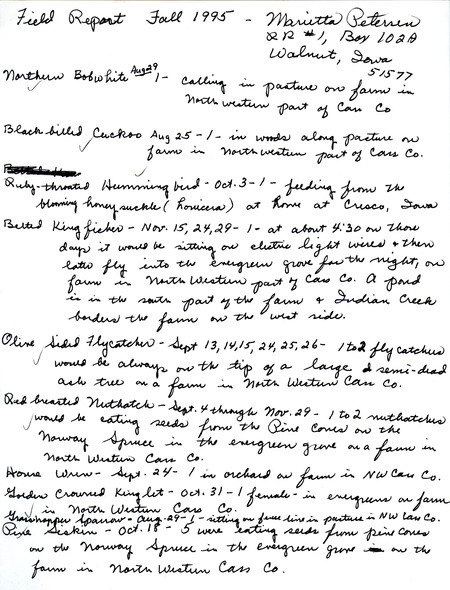 Field Report Fall 1995 - Marietta Petersen
RR #1, Box 102A
Walnut, Iowa
51577
Northern Bobwhite Aug 29 - 1 - calling in pasture on farm in
Northwestern part of Cass Co
Black-billed Cuckoo Aug 25 - 1 - in woods along pasture on
farm in Northwestern part of Cass Co.
Ruby-throated Hummingbird - Oct. 3 - 1 - feeding from the
blooming honeysuckle (Lonicera) at home at Cresco, Iowa
Belted Kingfisher - Nov. 15, 24, 29 - 1 - at about 4:30 on those
days it would be sitting on electric light wires & then
later fly into the evergreen grove for the night, on
farm in North Western part of Cass Co. A pond
is in the south part of the farm & Indian Creek
borders the farm on the west side.
Olive Sided Flycatcher - Sept 13, 14, 15, 24, 25, 26 - 1 to 2 flycatchers
would be always on the tip of a large & semi-dead
ash tree on a farm in North Western Cass Co.
Red breasted Nuthatch - Sept. 4 through Nov. 29 - 1 to 2 nuthatches
would be eating seeds from the Pine Cones on the
Norway Spruce in the evergreen grove on a farm in
North Western Cass Co.
House Wren - Sept. 24 - 1 in orchard on farm in NW Cass Co.
Golden Crowned Kinglet - Oct. 31 - 1 female - in evergreens on farm
in North Western Cass Co.
Grasshopper Sparrow - Aug. 29 - 1 - sitting on fence line in pasture in NW Cass Co.
Pine Siskin - Oct. 18 - 5 were eating seeds from pine cones
on the Norway Spruce in the evergreen grove on the
farm in North Western Cass Co.